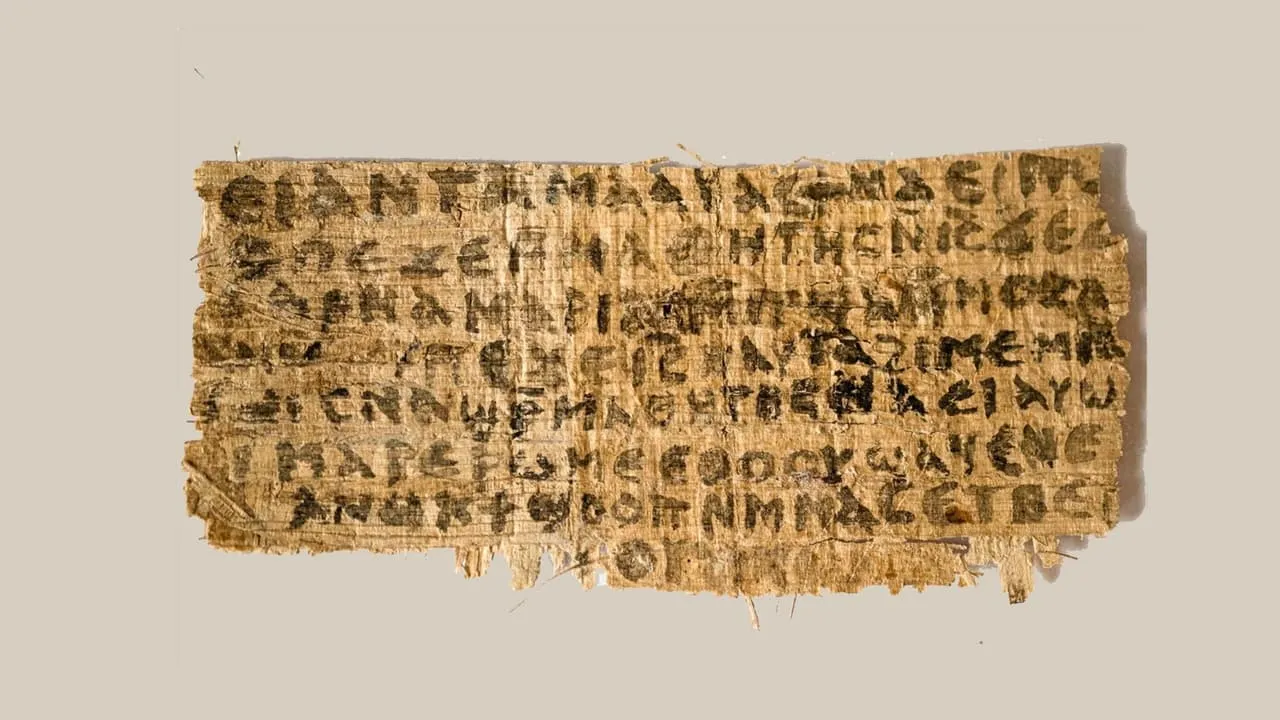 ⲉⲓ ⲁⲛ ⲧⲁⲙⲁⲁⲩ ⲁⲥϯ ⲛⲁⲉⲓ ⲡ
ⲡⲉϫⲉ ⲙⲙⲁⲑⲏⲧⲏⲥ ⲛ̄ⲓ̄ⲥ̄ ϫⲉ ⲥ
ⲁⲣⲛⲁ ⲙⲁⲣⲓⲁⲙ
ⲡⲉϫⲉ ⲓ̄ⲥ̄ ⲛⲁⲩ ⲧⲁϩⲓⲙⲉ ⲙⲛ̄
ⲥⲛⲁϣⲣ̄ⲙⲁⲑⲏⲧⲏⲥ ⲛⲁⲉⲓ ⲁⲩⲱ
ⲓ ⲙⲁⲣⲉⲣⲱⲙⲉ ⲉⲑⲟⲟⲩ ϣⲁϥⲉ ⲛⲉ
ⲁⲛⲟⲕ ϯϣⲟⲟⲡ ⲛⲙ̄ⲙⲁⲥ ⲉⲧⲃⲉ